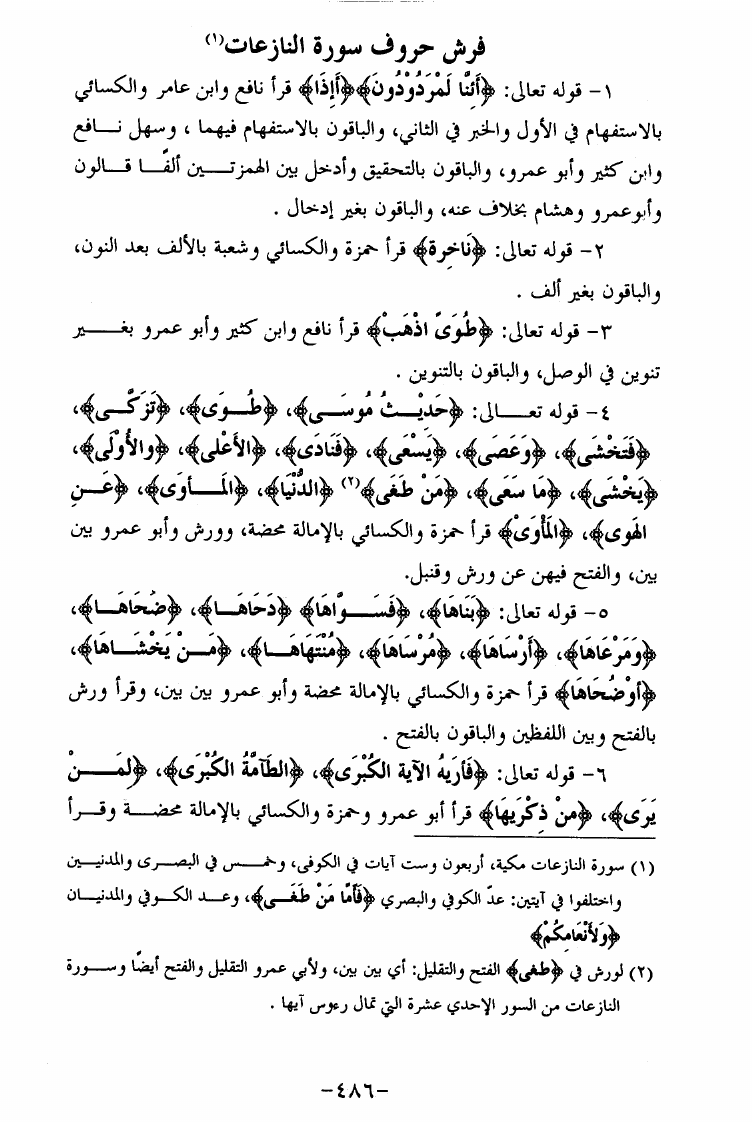 فرش حروف سورة النازعات(١)
١- قوله تعالى: ﴿أَئِنَّا لَمَرْدُودُونَ﴾ ﴿أَإِذَا﴾ قرأ نافع وابن عامر والكسائي
بالاستفهام في الأول والخبر في الثاني، والباقون بالاستفهام فيهما ، وسهل نـــافع
وابن كثير وأبو عمرو، والباقون بالتحقيق وأدخل بين الهمزتـــين ألفًـا قـالون
وأبوعمرو وهشام بخلاف عنه، والباقون بغير إدخال .
٢- قوله تعالى: ﴿نَاخِرة﴾ قرأ حمزة والكسائي وشعبة بالألف بعد النون،
والباقون بغير ألف .
٣- قوله تعالى: ﴿طُوَىً اذْهَبْ﴾ قرأ نافع وابن كثير وأبو عمرو بغـــير
تنوين في الوصل، والباقون بالتنوين .
٤- قوله تعـــالى: ﴿حَدِيْـثُ مُوسَـى﴾، ﴿طُـوَى﴾، ﴿تَزَكَّـى﴾،
﴿فَتَخْشَى﴾، ﴿وَعَصَى﴾، ﴿يَسْعَى﴾، ﴿فَنَادَى﴾، ﴿الأَعْلى﴾، ﴿والأُوْلَى﴾،
﴿يَخْشَى﴾، ﴿مَا سَعَى﴾، ﴿مَنْ طَغَى﴾(٢) ﴿الدُّنْيَا﴾، ﴿المَـأوَى﴾، ﴿عَـنِ
الهَوى﴾، ﴿المَأْوَىْ﴾ قرأ حمزة والكسائي بالإمالة محضة، وورش وأبو عمرو بين
بين، والفتح فيهن عن ورش وقنبل.
٥- قوله تعالى: ﴿بَنَاهَا﴾، ﴿فَسَـوَّاهَا﴾ ﴿دَحَاهَـا﴾، ﴿ضُحَاهَـا﴾،
﴿وَمَرْعَاهَا﴾، ﴿أَرْسَاهَا﴾، ﴿مُرْسَاهَا﴾، ﴿مُنْتَهَاهَـا﴾، ﴿مَـنْ يَخْشَـاهَا﴾،
﴿أوْضُحَاهَا﴾ قرأ حمزة والكسائي بالإمالة محضة وأبو عمرو بين بين، وقرأ ورش
بالفتح وبين اللفظين والباقون بالفتح .
٦- قوله تعالى: ﴿فَأَرَيهُ الآية الكُبْرَى﴾، ﴿الطَآمَّةُ الكُبْرَى﴾، ﴿لِمَـــنْ
يَرَى﴾، ﴿مِنْ ذِكْرَيهَا﴾ قرأ أبو عمرو وحمزة والكسائي بالإمالة محضـــة وقـرأ
(١) سورة النازعات مكية، أربعون وست آيات في الكوفى، وخمـس في البصرى والمدنيـين
واختلفوا في آيتين: عدّ الكوفي والبصري ﴿فَأَمَّا مَنْ طَغَـى﴾، وعـد الكـوفي والمدنيـان
﴿وَلأَنْعَامِكُمْ﴾
(٢) لورش في ﴿طغى﴾ الفتح والتقليل: أي بين بين، ولأبي عمرو التقليل والفتح أيضًا وسـورة
النازعات من السور الإحدي عشرة التي تمال رءوس آيها .
-٤٨٦-